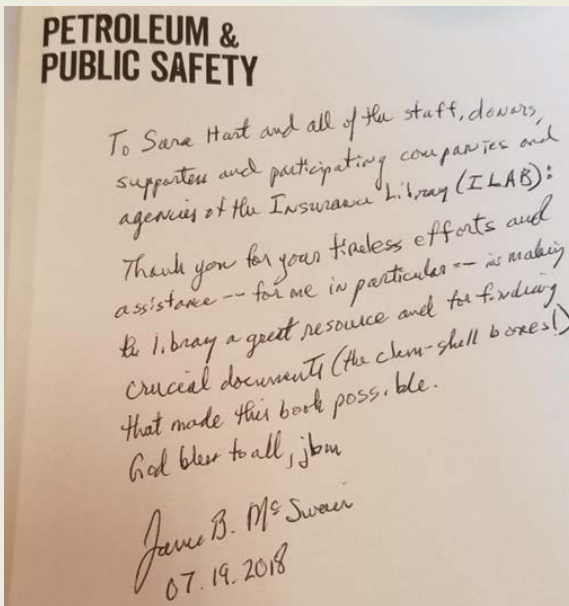 PETROLEUM &
PUBLIC SAFETY
To Sara Hart and all of the staff, donors,
supporters and participating companies and
agencies of the Insurance Library (ILAB):
Thank you for your tireless efforts and
assistance -- for me in particular -- in making
the library a great resource and for finding
crucial documents (the clam-shell boxes!)
that made this book possible.
God bless to all, jbm
James B. McSwain
07.19.2018